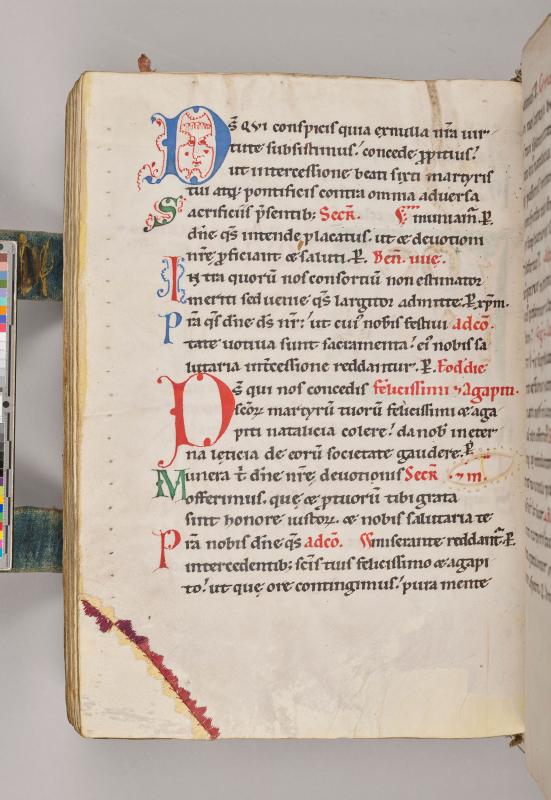 Ds̄ QVI conspicis quia exnulla nr̄a uir
tute subsistimus! concede ꝓpitius!
ut intercessione beati sixti martyris
tui atq; pontificis contra omnia aduersa
Sacrificiis p̄sentib; Secr̄. muniam̄. P̲.
dn̄e qs̄ intende placatus. ut & deuotioni
nr̄e ꝓficiant & saluti. P̲.
Intra quorū nos consortiū non estimator
meriti sed uenie qs̄ largitor admitte. P̲ xp̄m.
Pr̄a qs̄ dn̄e ds̄ nr̄: ut cui' nobis festiui adcō.
tate uotiua sunt sacramenta! ei' nobis sa
lutaria int̄cessione reddantur. P̲. Eod die
Ds̄ qui nos concedis felicissimi & Agapiti.
scōꝝ martyrū tuorū felicissimi & aga
piti natalicia colere! da nob' in eter
na leticia de eorū societate gaudere. P̲
Munera t̄ dn̄e nr̄e deuotionis Secr̄
offerimus. quę & ꝓ tuorū tibi grata
sint honore iustoꝝ. & nobis salutaria te
Pr̄a nobis dn̄e qs̄ adcō. miserante reddant̄. P̲.
intercedentib; scīs tuis felicissimo & agapi
to! ut quę ore contingimus! pura mente